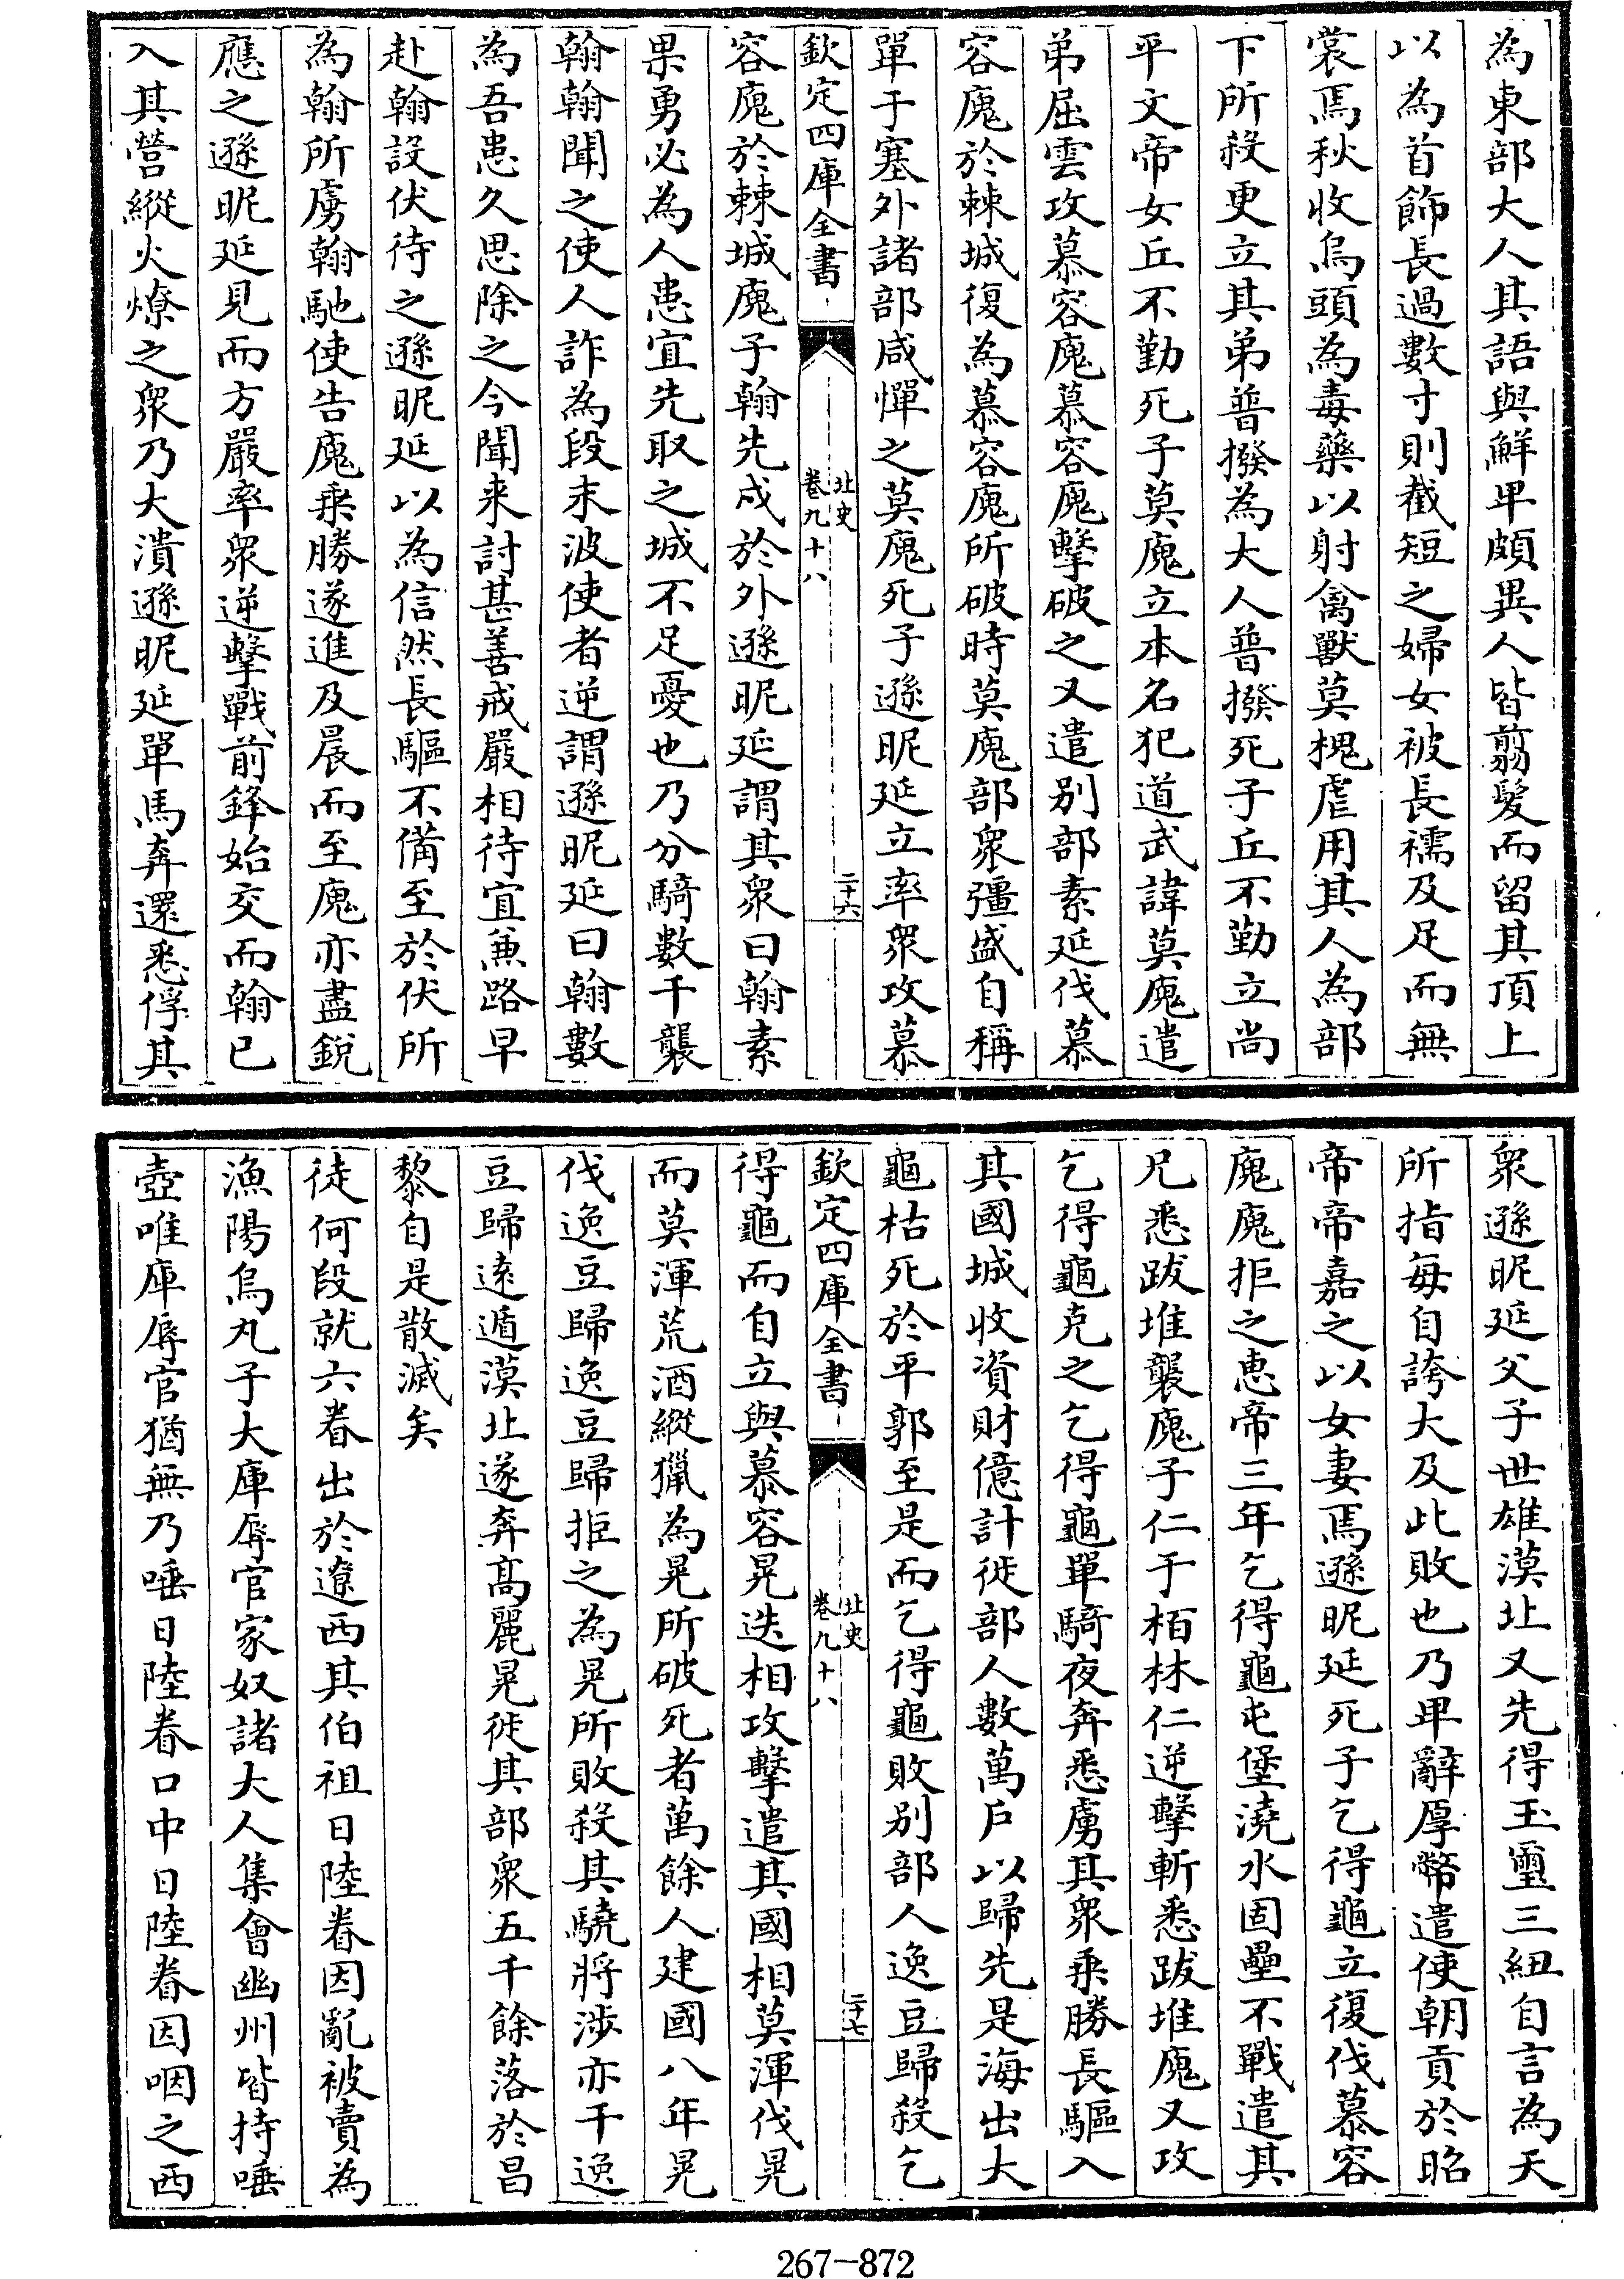 為東部大人其語與鮮卑頗異人皆翦髮而留其頂上
以為首飾長過數寸則截短之婦女被長襦及足而無
裳焉秋收烏頭為毒藥以射禽獸莫槐虐用其人為部
下所殺更立其弟普撥為大人普撥死子丘不勤立尚
平文帝女丘不勤死子莫廆立本名犯道武諱莫廆遣
弟屈雲攻慕容廆慕容廆擊破之又遣别部素延伐慕
容廆於棘城復為慕容廆所破時莫廆部衆彊盛自稱
單于塞外諸部咸憚之莫廆死子遜昵延立率衆攻慕
欽定四庫全書
北史
卷九十八
二十六
容廆於棘城廆子翰先戍於外遜昵延謂其衆曰翰素
果勇必為人患宜先取之城不足憂也乃分騎數千襲
翰翰聞之使人詐為段末波使者逆謂遜昵延曰翰數
為吾患久思除之今聞来討甚善戒嚴相待宜兼路早
赴翰設伏待之遜昵延以為信然長驅不備至於伏所
為翰所虜翰馳使告廆乗勝遂進及晨而至廆亦盡銳
應之遜昵延見而方嚴率衆逆擊戰前鋒始交而翰已
入其營縱火燎之衆乃大潰遜昵延單馬奔還悉俘其
衆遜昵延父子世雄漠北又先得玉璽三紐自言為天
所指每自誇大及此敗也乃卑辭厚幣遣使朝貢於昭
帝帝嘉之以女妻焉遜昵延死子乞得龜立復伐慕容
廆廆拒之恵帝三年乞得龜屯堡澆水固壘不戰遣其
兄悉跋堆襲廆子仁于栢林仁逆擊斬悉跋堆廆又攻
乞得龜克之乞得龜單騎夜奔悉虜其衆乗勝長驅入
其國城收資財億計徙部人數萬戶以歸先是海出大
龜枯死於平郭至是而乞得龜敗别部人逸豆歸殺乞
欽定四庫全書
北史
卷九十八
二十七
得龜而自立與慕容晃迭相攻擊遣其國相莫渾伐晃
而莫渾荒酒縱獵為晃所破死者萬餘人建國八年晃
伐逸豆歸逸豆歸拒之為晃所敗殺其驍將涉亦干逸
豆歸逺遁漠北遂奔髙麗晃徙其部衆五千餘落於昌
黎自是散滅矣
徒何段就六眷出於遼西其伯祖日陸眷因亂被賣為
漁陽烏丸子大庫辱官家奴諸大人集會幽州皆持唾
壺唯庫辱官猶無乃唾日陸眷口中日陸眷因咽之西
267-872